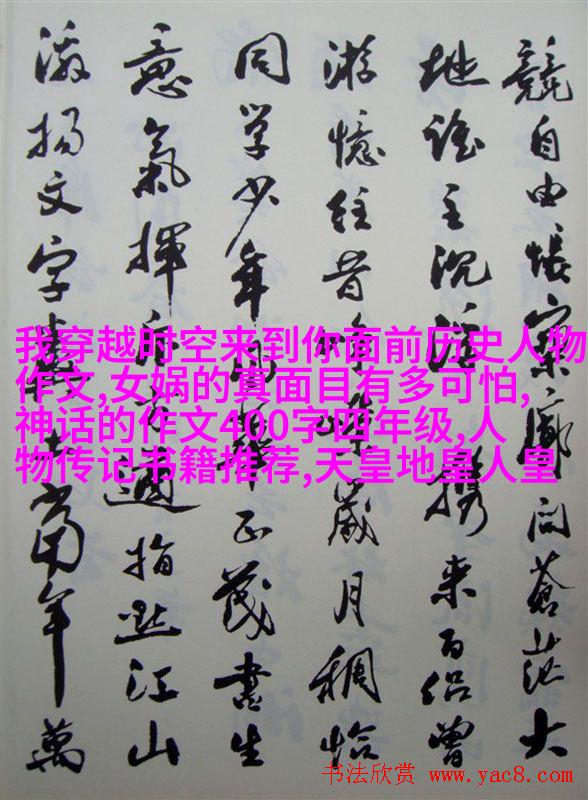 競自由悵寥廓問蒼茫大
地誰主沉浮攜來百侶曾
游憶往昔崢嶸歲月稠恰
同學少年風華正茂書生
意氣揮斥方遒指點江山
激揚文字糞土當年萬
我穿越时空来到你面前历史人物
作文,女娲的真面目有多可怕,
神话的作文400字四年级,人
物传记书籍推荐,天皇地皇人皇
书法欣赏 www.yac8.com